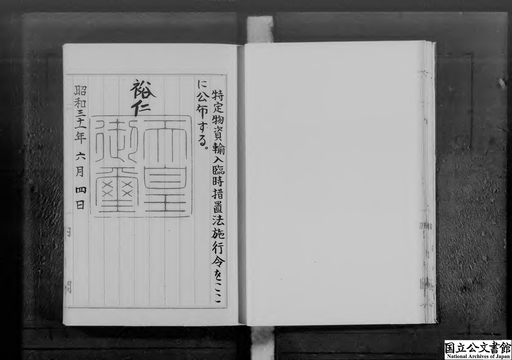 特定物資輸入臨時措置法施行令をここ
に公布する。
裕仁
天皇
御璽
昭和三十一年六月四日
国立公文書館
National Archives of Japan